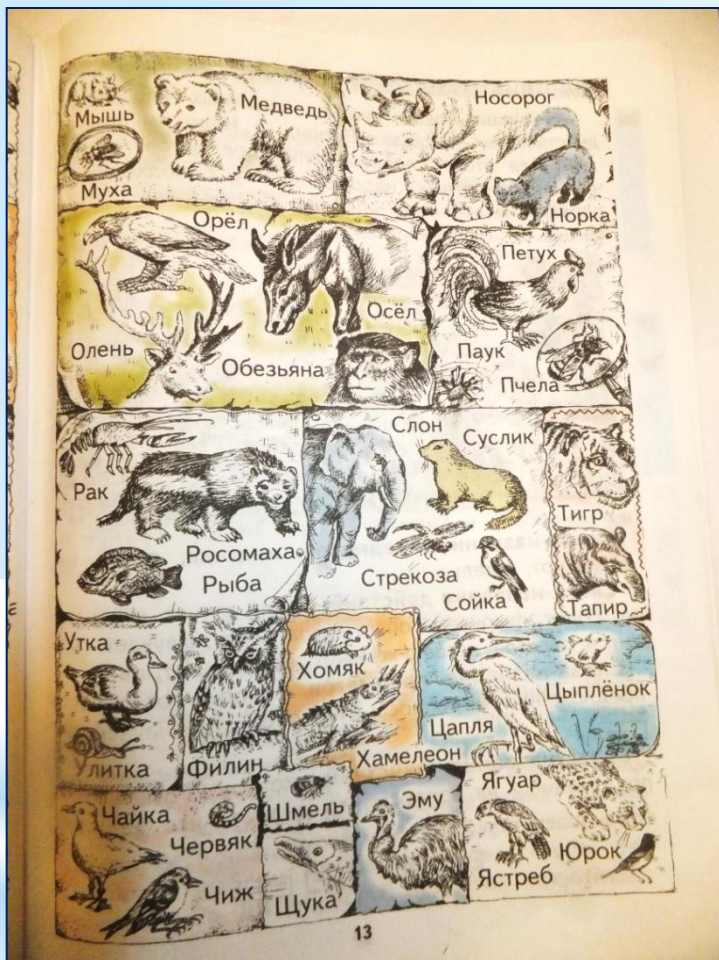 Мышь
Медведь
Муха
Носорог
Норка
Орёл
Осёл
Олень
Обезьяна
Петух
Паук
Пчела
Рак
Росомаха
Рыба
Слон
Суслик
Стрекоза
Сойка
Тигр
Тапир
Утка
Улитка
Филин
Хомяк
Хамелеон
Цыплёнок
Цапля
Чайка
Червяк
Чиж
Шмель
Щука
Эму
Ягуар
Юрок
Ястреб
13